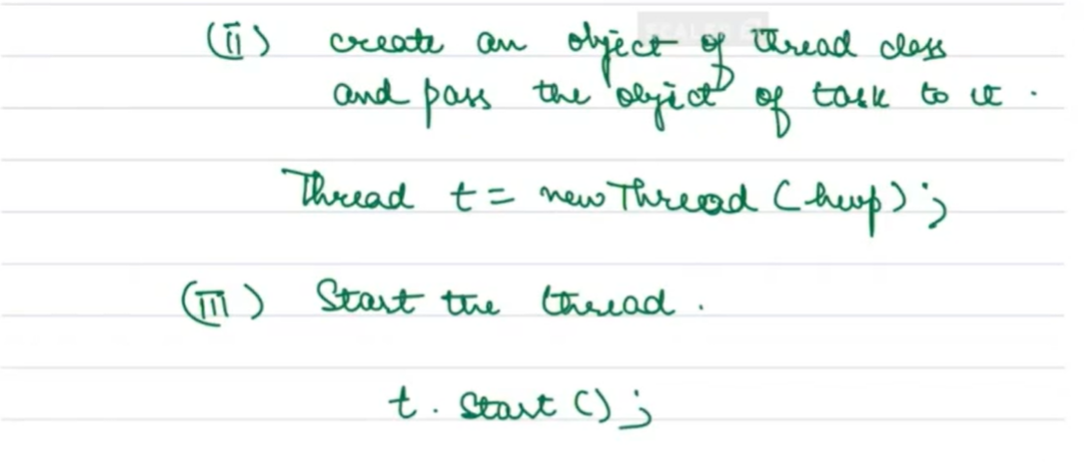 (ii) create an object of thread class
and pass the object of task to it.
Thread t = new Thread (hwp);
(iii) Start the thread.
t. start ();